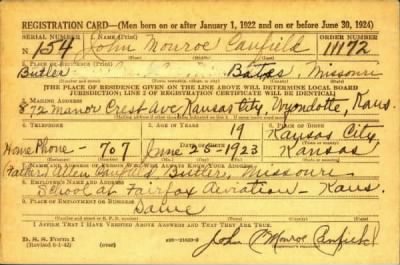 REGISTRATION CARD—(Men born on or after January 1, 1922 and on or before June 30, 1924)
SERIAL NUMBER 1. NAME (Print) ORDER NUMBER
N 154 John Monroe Canfield 11172
2. PLACE OF RESIDENCE (Print)
Butler Bates, Missouri
[THE PLACE OF RESIDENCE GIVEN ON THE LINE ABOVE WILL DETERMINE LOCAL BOARD
JURISDICTION; LINE 2 OF REGISTRATION CERTIFICATE WILL BE IDENTICAL]
3. MAILING ADDRESS
872 Manor Crest Ave Kansas City, Wyondotte, Kans.
4. TELEPHONE 5. AGE IN YEARS 6. PLACE OF BIRTH
19 Kansas City,
DATE OF BIRTH
Home Phone - 707 June 25 1923 Kansas
7. NAME AND ADDRESS OF PERSON WHO WILL ALWAYS KNOW YOUR ADDRESS
(Father) Allen Canfield, Butler, Missouri
8. EMPLOYER'S NAME AND ADDRESS
School at Fairfax Aviation - Kans.
9. PLACE OF EMPLOYMENT OR BUSINESS
Same
I AFFIRM THAT I HAVE VERIFIED ABOVE ANSWERS AND THAT THEY ARE TRUE.
D. S. S. Form 1
(Revised 6-1-42) (over)
John Monroe Canfield
(Registrant's signature)